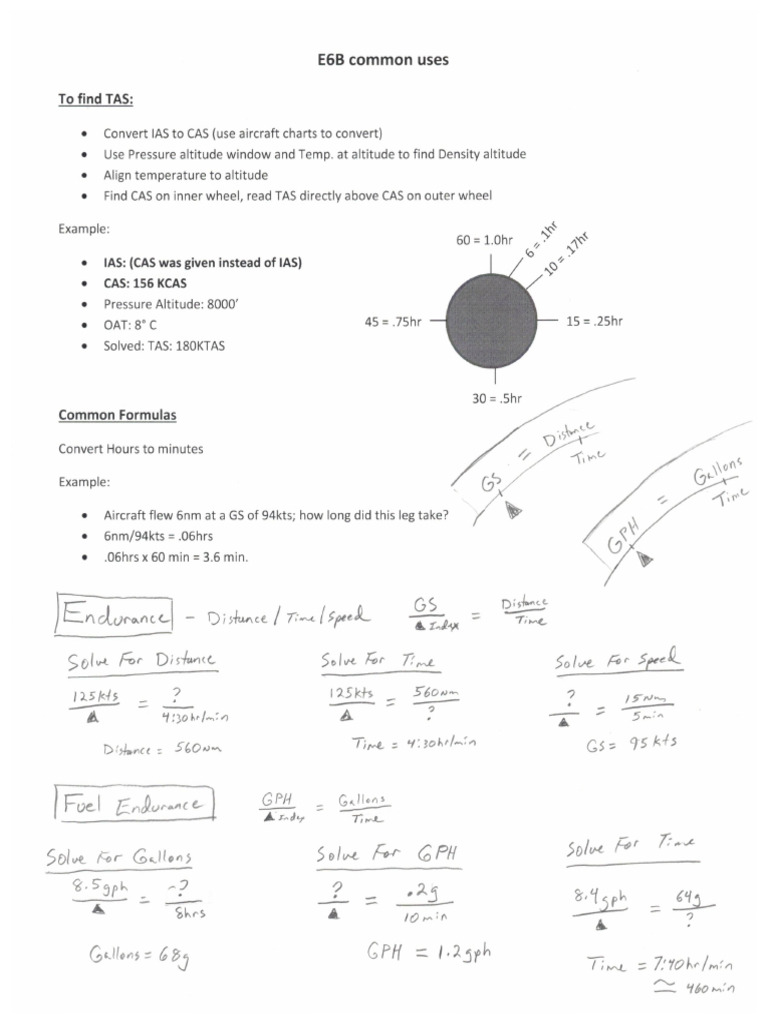 E6B common uses
To find TAS:
• Convert IAS to CAS (use aircraft charts to convert)
• Use Pressure altitude window and Temp. at altitude to find Density altitude
• Align temperature to altitude
• Find CAS on inner wheel, read TAS directly above CAS on outer wheel
Example:
• IAS: (CAS was given instead of IAS)
• CAS: 156 KCAS
• Pressure Altitude: 8000'
• OAT: 8° C
• Solved: TAS: 180KTAS
60 = 1.0hr
6 = .1hr
10 = .17hr
45 = .75hr
15 = .25hr
30 = .5hr
Common Formulas
Convert Hours to minutes
Example:
• Aircraft flew 6nm at a GS of 94kts; how long did this leg take?
• 6nm/94kts = .06hrs
• .06hrs x 60 min = 3.6 min.
GS = Distance
Time
GPH = Gallons
Time
Endurance - Distance/Time/Speed
GS = Distance
▲ Index Time
Solve For Distance
125kts = ?
▲ 4:30hr/min
Distance = 560nm
Solve For Time
125kts = 560nm
▲ ?
Time = 4:30hr/min
Solve For Speed
? = 15nm
▲ 5min
GS = 95kts
Fuel Endurance
GPH = Gallons
▲ Index Time
Solve For Gallons
8.5gph = ?
▲ 8hrs
Gallons = 68g
Solve For GPH
? = .2g
▲ 10min
GPH = 1.2gph
Solve For Time
8.4gph = 64g
▲ ?
Time = 7:40hr/min
≅ 460min